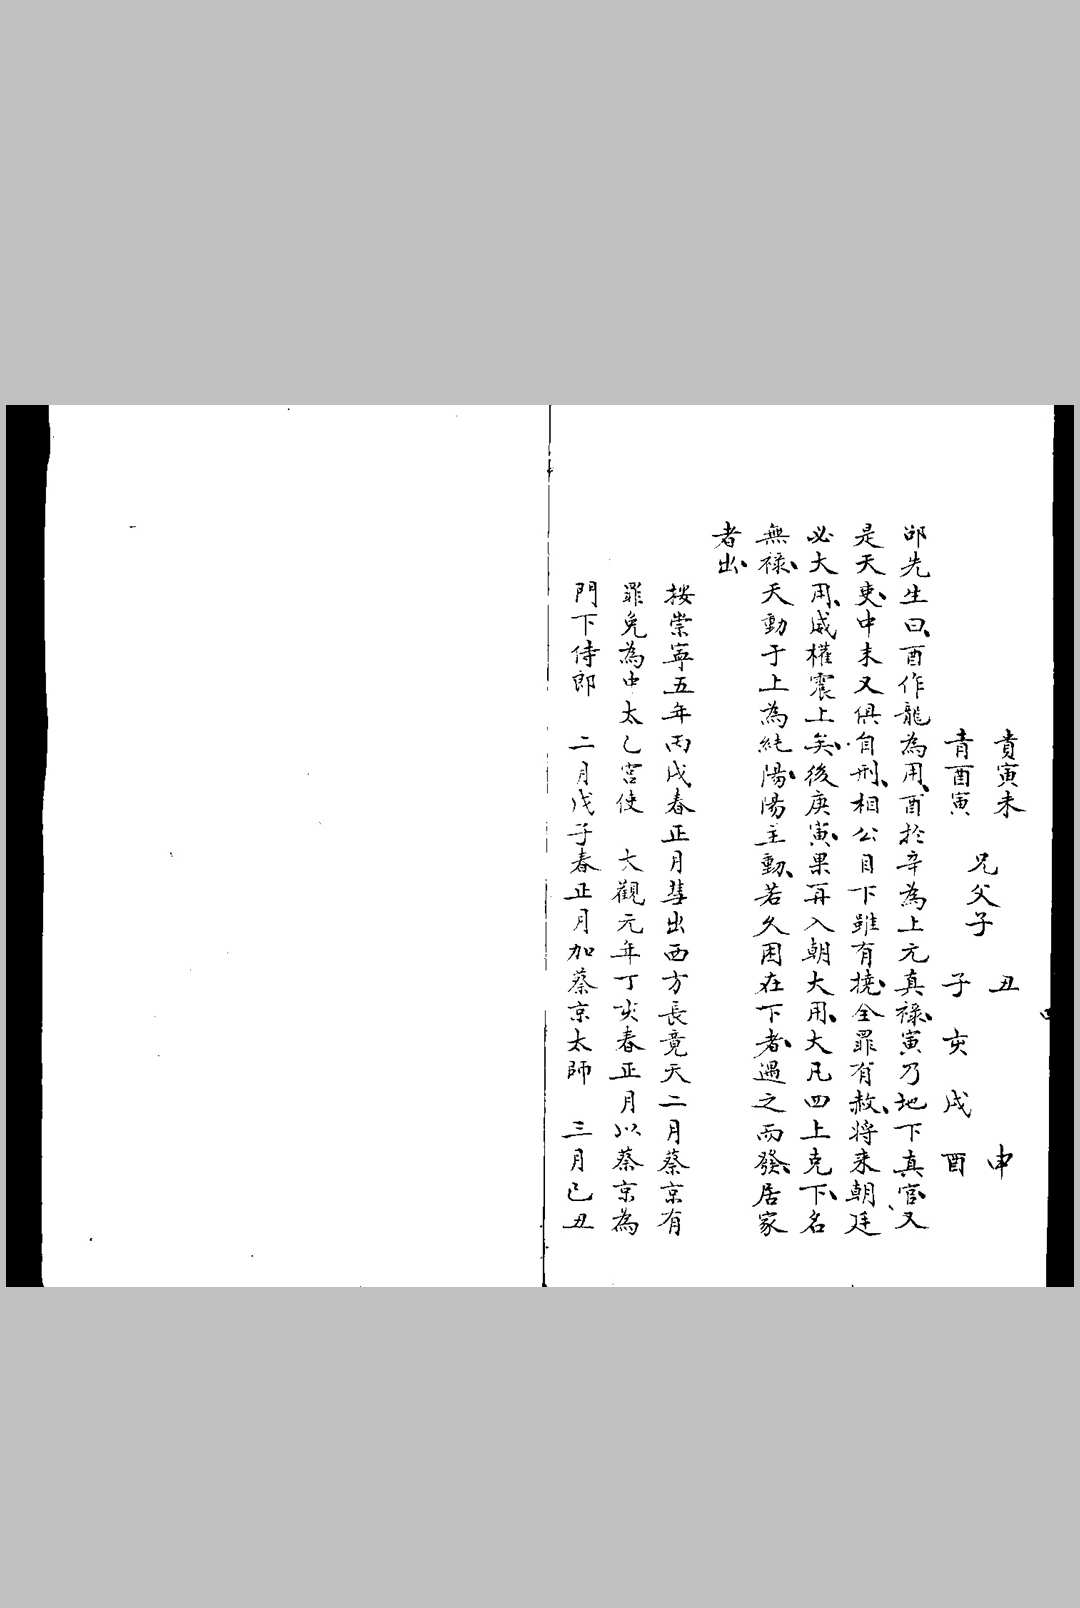 貴寅未　丑　申
青酉寅　子　亥　戌　酉
兄父子
邵先生曰、酉作龍為用、酉於辛為上元真祿、寅乃地下真官、又
是天吏、中末又俱自刑、相公目下雖有撓、全罪有赦、將來朝廷
必大用、威權震上矣、後庚寅、果再入朝大用、大凡四上克下、名
無祿、天動于上為純陽、陽主動、若久困在下者、遇之而發、居家
者出、
按崇寧五年丙戌春正月彗出西方長竟天二月蔡京有
罪免為中太乙宮使　大觀元年丁亥春正月以蔡京為
門下侍郎　二月戊子春正月加蔡京太師　三月己丑